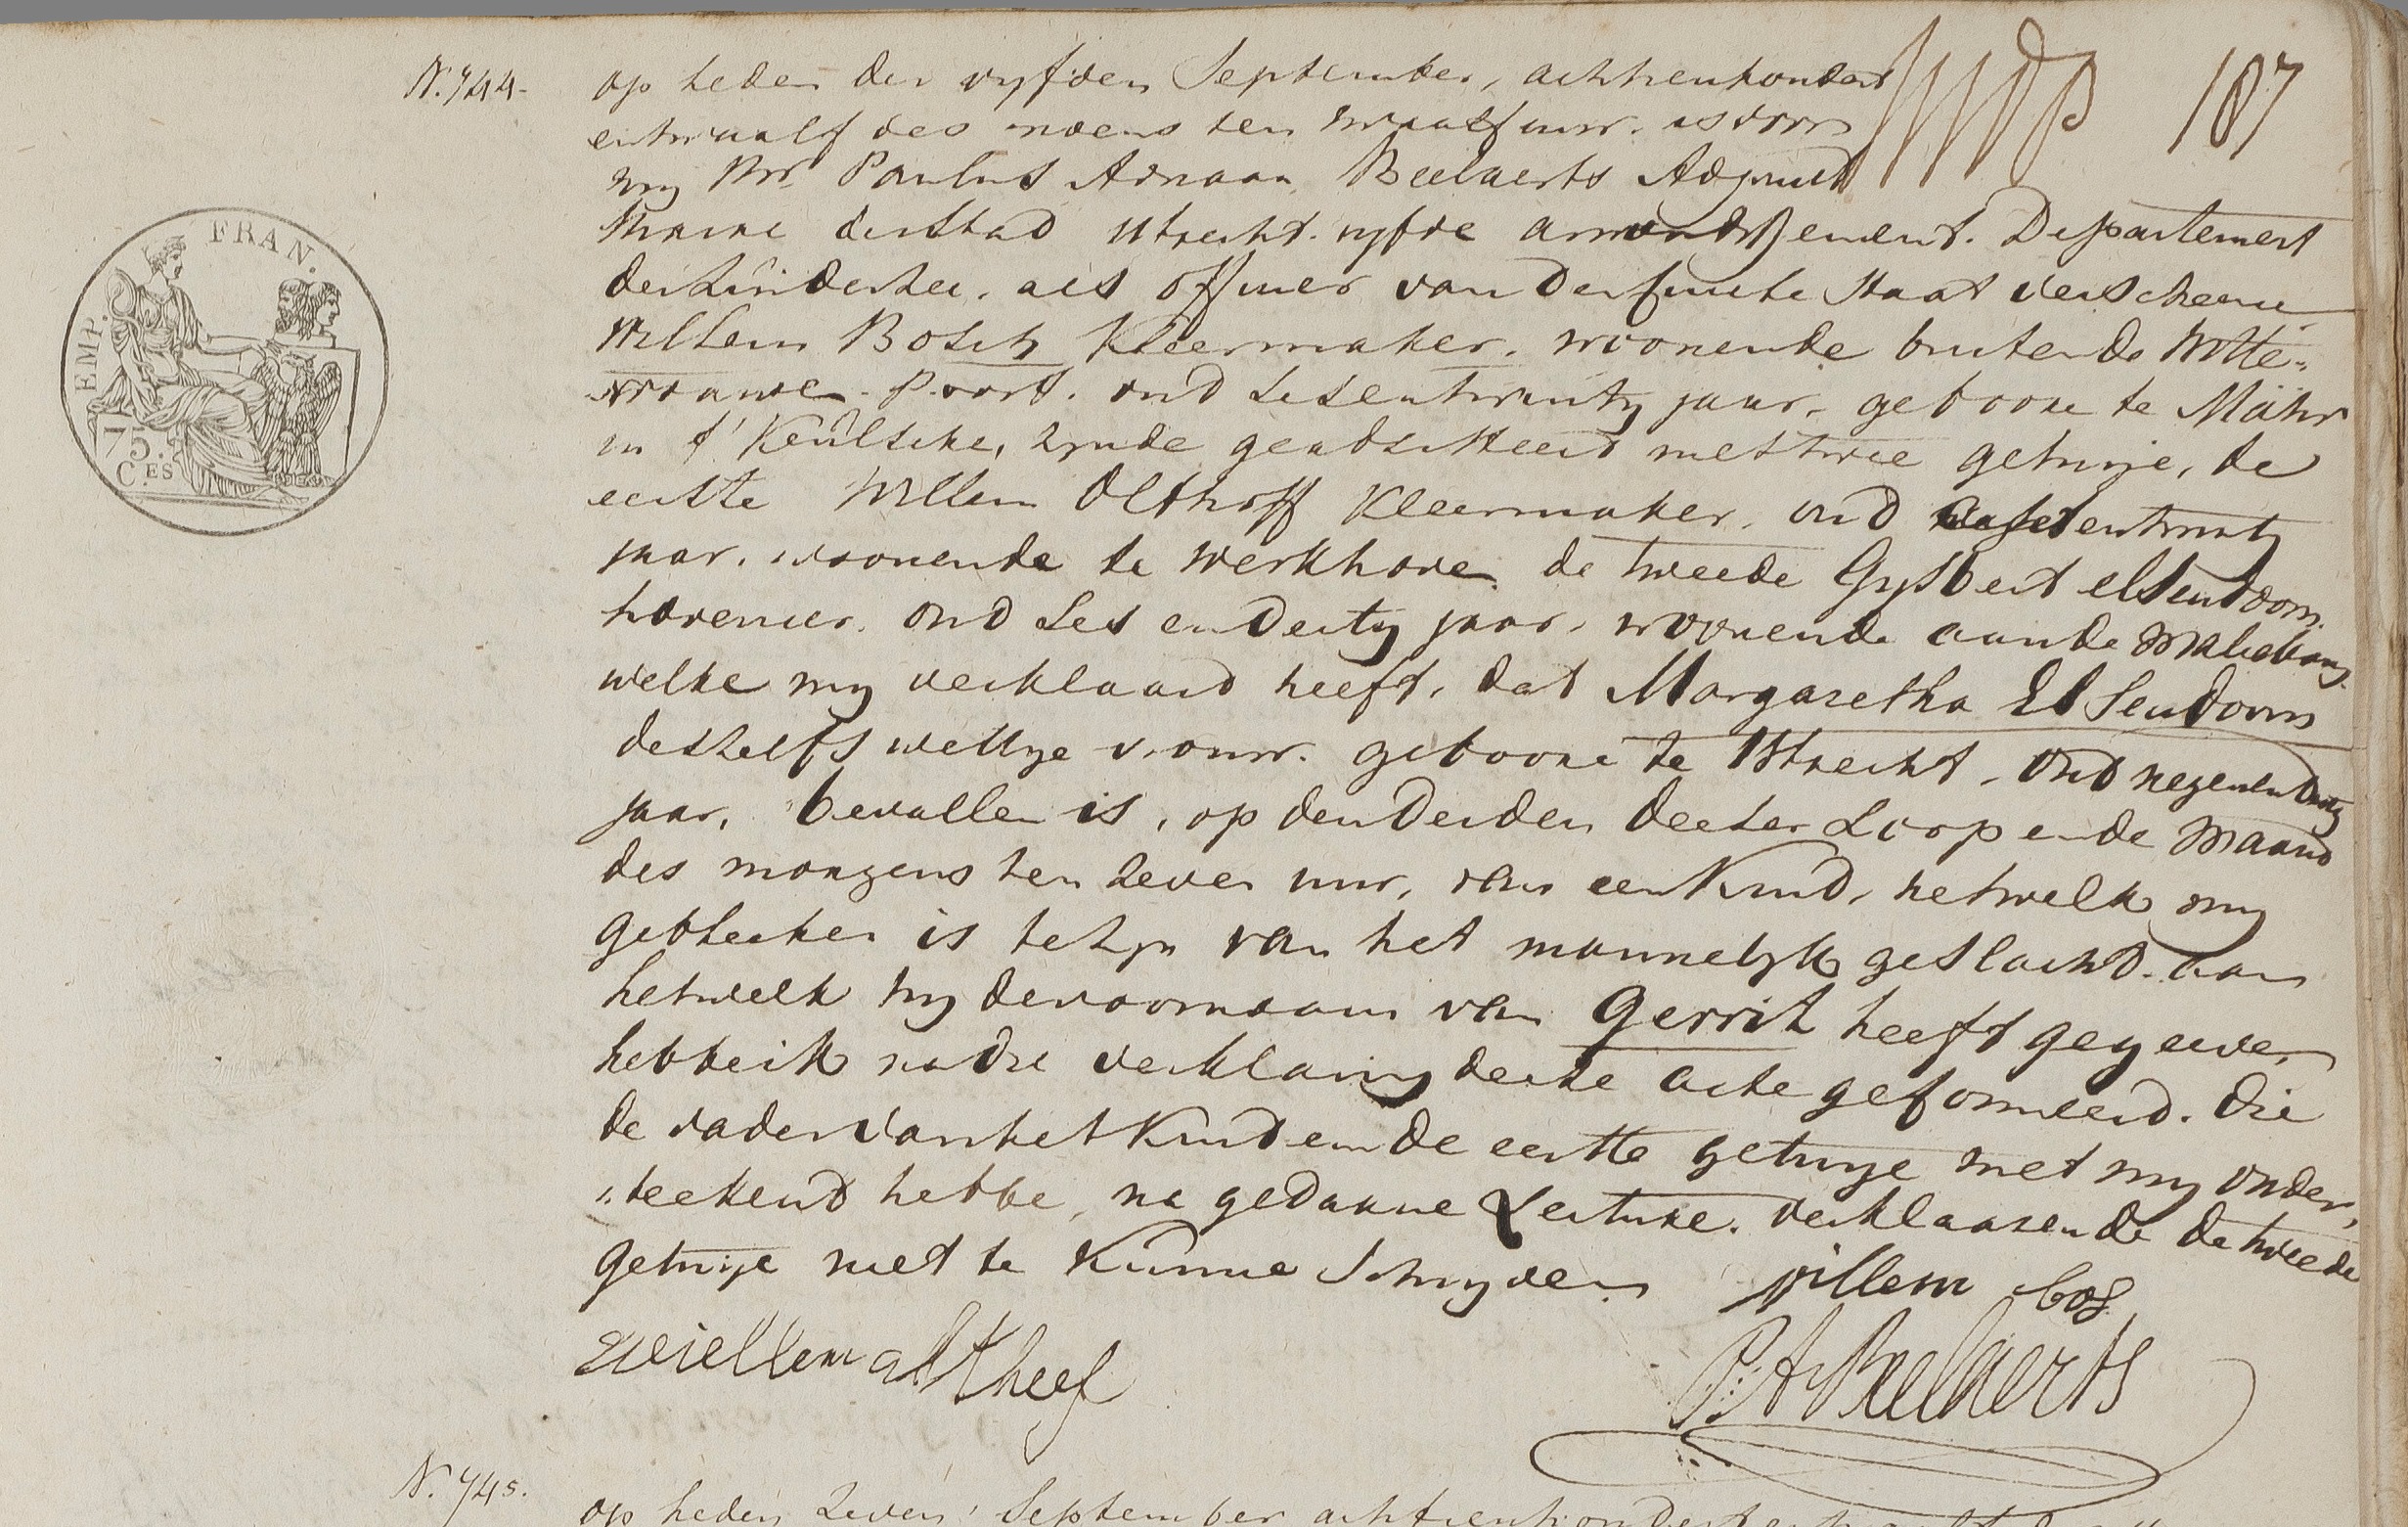 N. 744.
op heden den vyfden September, achtienhondert
entwaalf des noens ten twaalf uur. is voor
my Mr. Paulus Adriaan Beelaerts Adjunct
Maire der Stad Utrecht. vyfde arrondissement. Departement
der Zuiderzee. als officier van den burgerlyke Staat verscheene
Willem Bosch Kleermaker. woonende buitende Witte-
vrouwen Poort. oud sesentwintig jaar, geboore te Mähr
in t' Keûlsche, zynde geadsisteerd met twee getuige, de
eerste Willem Olthoff Kleermaker. oud entwintig
jaar. woonende te Werkhove de tweede Gysbert elsendoorn
hovenier. oud Ses en Dertig jaar, woonende aande Maliebaan,
welke my verklaard heeft, dat Margaretha Elsendoorn
deszelfs wettige vrouw. geboore te Utrecht, oud negenendertig
jaar, bevallen is, op den Derden deeser Loopende Maand
des morgens ten seven uur, van een Kind, hetwelk my
gebleeken is tezyn van het mannelyk geslacht. aan
hetwelk hy devoornaam van Gerrit heeft gegeeven,
hebbeik nadie verklaring deese acte geformeerd. Die
de vader van het Kind en de eerste getuige met my onder,
"teekend hebbe, na gedaane Lecture. verklaarende de tweede
getuige niet te Kunne Schryven. willem bos
wiellem altheef P: A: Beelaerts
N. 745.
op heden Zeven September achtienhondert
187
FRAN.
EMP.
75.
C.ES